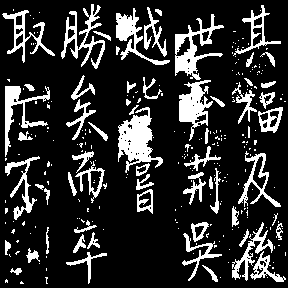 其福及後
世齊荆吳
越皆嘗
勝矣而卒
取亡不